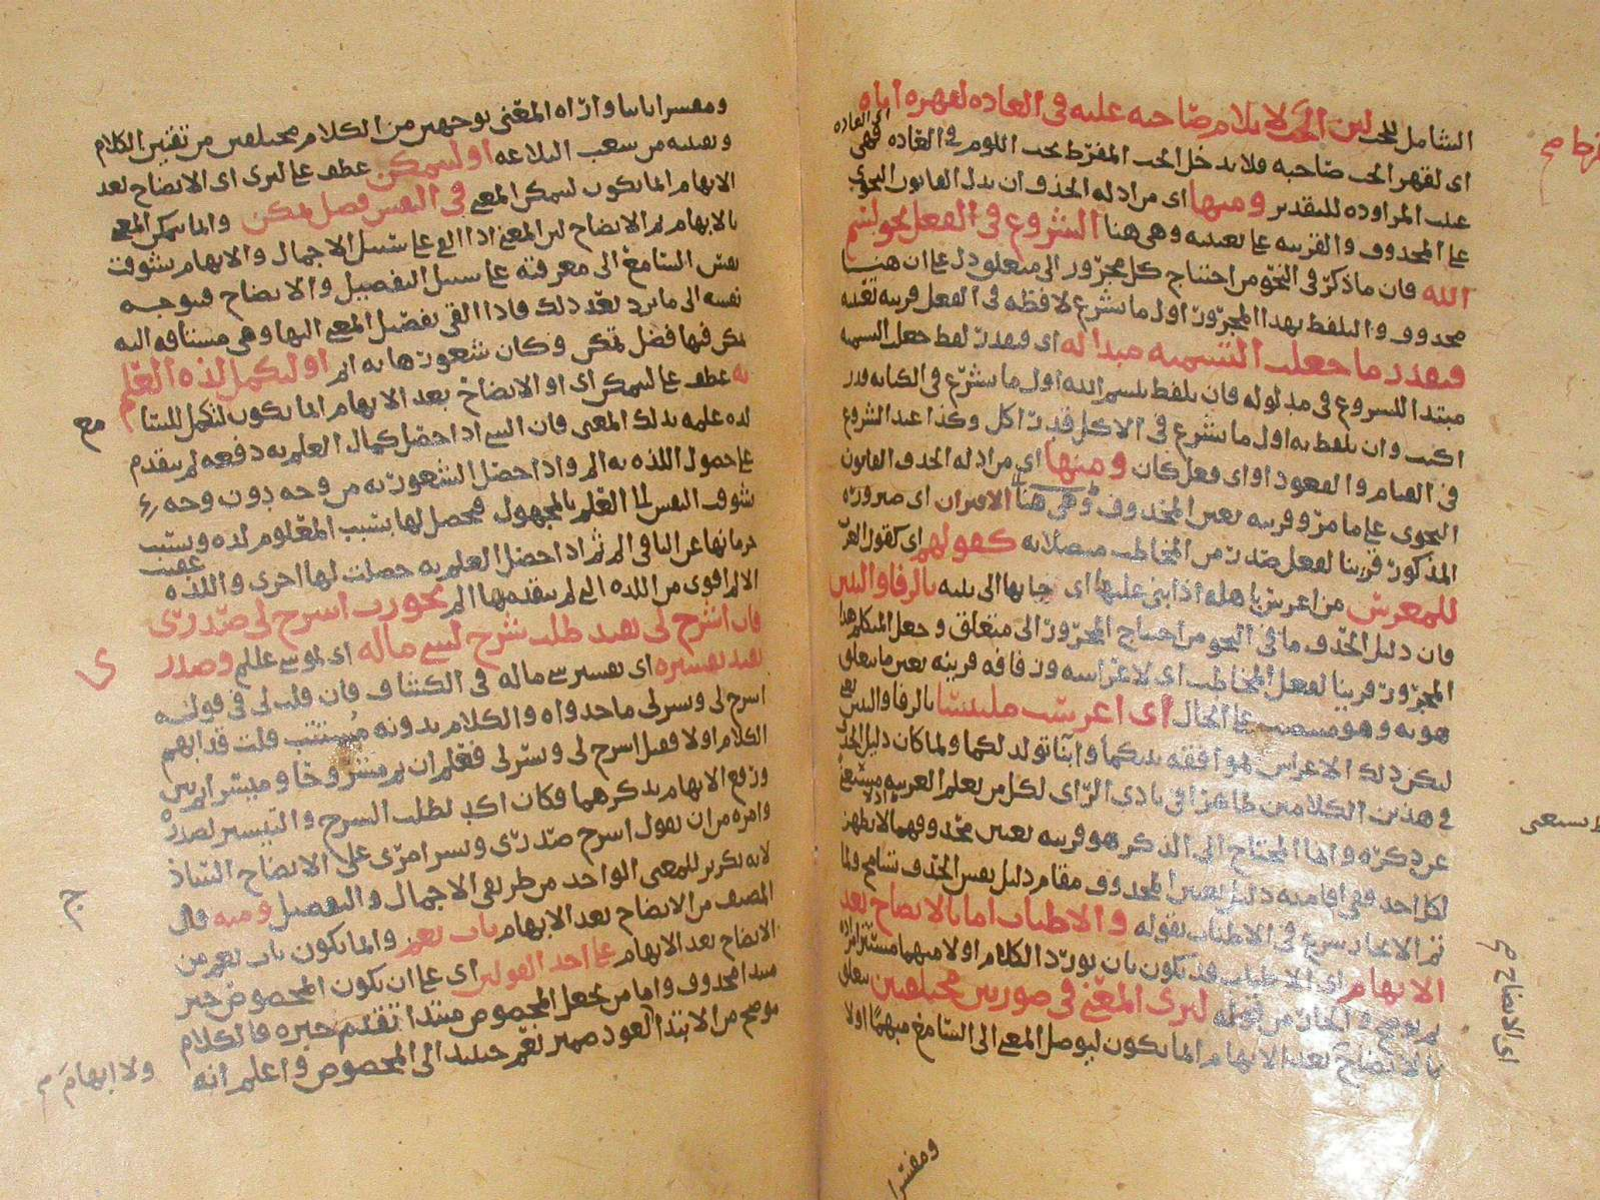 الشامل للحب لان الحب لا يلام صاحبه عليه في العاده لقهره اياه
اي لقهر الحب صاحبه فلا يدخل الحب المفرط تحت اللوم في العاده فهي
المراوده للتقدير ومنها اي من ادله الحذف ان يدل القانون النحوي
على المحذوف والقرينه على تعيينه وهي هنا الشروع في الفعل نحو بسم
الله فان ما ذكر في النحو من احتياج كل مجرور الى متعلق دل على ان هنا
محذوف والتلفظ بهذا المجرور اول ما يشرع لافظه في الفعل قرينه تعينه
فيقدر ما جعلت التسميه مبدا له اي فيقدر لفظ جعل التسميه
مبتدا للشروع في مدلوله فان تلفظ بلسم الله اول ما يشرع في الكتابه قدر
اكتب وان تلفظ به اول ما يشرع في الاكل قدر اكل وكذا عند الشروع
في القيام والقعود او اي فعل كان ومنها اي من ادله الحذف القانون
النحوي على ما مر وقرينه تعين المحذوف وهي هنا الاقتران اي صيرورة
المذكور قرينا لفعل صدر من المخاطب متصلا به كقولهم اي كقول العرب
للمعرس من اعرس باهله اذا بنى عليها اي جا بها الى بيته بالرفا والبنين
فان دليل الحذف ما في النحو من احتياج المجرور الى متعلق وجعل المتكلم هذا
المجرور قرينا لفعل المخاطب اي لاعراسه وزفافه قرينه تعين ما يتعلق
هو به وهو منصوب على الحال اي اعرست ملتبسا بالرفا والبنين
ليكن ذلك الاعراس موافقه بينكما وابنا تولد لكما ولما كان دليل الحذف
في هذين الكلامين ظاهرا في بادي الراي لكل من يعلم العربيه
عن ذكره وانما المحتاج الى الذكر هو قرينه تعين محذوفهما اذ لا يظهر
لكل احد ففي اقامته دليل تعين المحذوف مقام دليل نفس الحذف تسامح ولما
تم الايجاز شرع في الاطناب بقوله والاطناب اما بالايضاح بعد
الابهام اي الاطناب قد يكون بان يورد الكلام اولا مبهما
ثم يوضح والمجاز من قوله ليرى المعنى في صورتين مختلفتين يتعلق
بالايضاح بعد الابهام انما يكون ليوصل المعنى الى السامع مبهما اولا
ومفسرا
ومفسرا ثانيا واراه المعنى بوجهين من الكلام مختلفين من تفنين الكلام
وتعينه من شعب البلاغه او ليتمكن عطف على ليرى اي الايضاح بعد
الابهام انما يكون ليتمكن المعنى في النفس فضل تمكن وانما يتمكن المعنى
بالابهام ثم الايضاح لان المعنى اذا القي على سبيل الاجمال والابهام تشوقت
نفس السامع الى معرفته على سبيل التفصيل والايضاح فتوجه
نفسه الى ما يرد بعد ذلك فاذا القي تفصيل المعنى اليها وهي مشتاقه اليه
تمكن فيها فضل تمكن وكان شعورها به اتم او لتكمل لذه العلم
به عطف على ليتمكن اي او الايضاح بعد الابهام انما يكون لتكمل للسامع
لذه علمه بذلك المعنى فان الشي اذا حصل كمال العلم به دفعه لم يتقدم
على حصول اللذه به الم واذا حصل الشعور به من وجه دون وجه
تشوق النفس الى العلم بالمجهول فيحصل لها بسبب المعلوم لذه وبسبب
حرمانها عن الباقي الم ثم اذا حصل العلم به حصلت لها اخرى واللذه عقيب
الالم اقوى من اللذه التي لم يتقدمها الم نحو رب اشرح لي صدري
فان اشرح لي يفيد طلب شرح لشي ما له اي لموسى عللم وصدري
يفيد تفسيره اي تفسير شي ما له في الكشاف فان قلت لي في قوله
اشرح لي ويسر لي ما جدواه والكلام بدونه مستتب قلت قد ابهم
الكلام اولا فقيل اشرح لي ويسر لي فعلم ان ثم مشروحا وميسرا ثم بين
ورفع الابهام بذكرهما فكان اكد لطلب الشرح والتيسير لصدره
وامره من ان يقول اشرح صدري ويسر امري على الايضاح الساذج
لانه تكرير للمعنى الواحد من طريقي الاجمال والتفصيل ومنه قال
المصنف من الايضاح بعد الابهام باب نعم وانما يكون باب نعم من
الايضاح بعد الابهام على احد القولين اي على ان يكون المخصوص خبر
مبتدا محذوف واما من يجعل المخصوص مبتدا تقدم خبره فالكلام
موضح من الابتدا لعود ضمير نعم حينئذ الى المخصوص واعلم انه
ولا ابهام